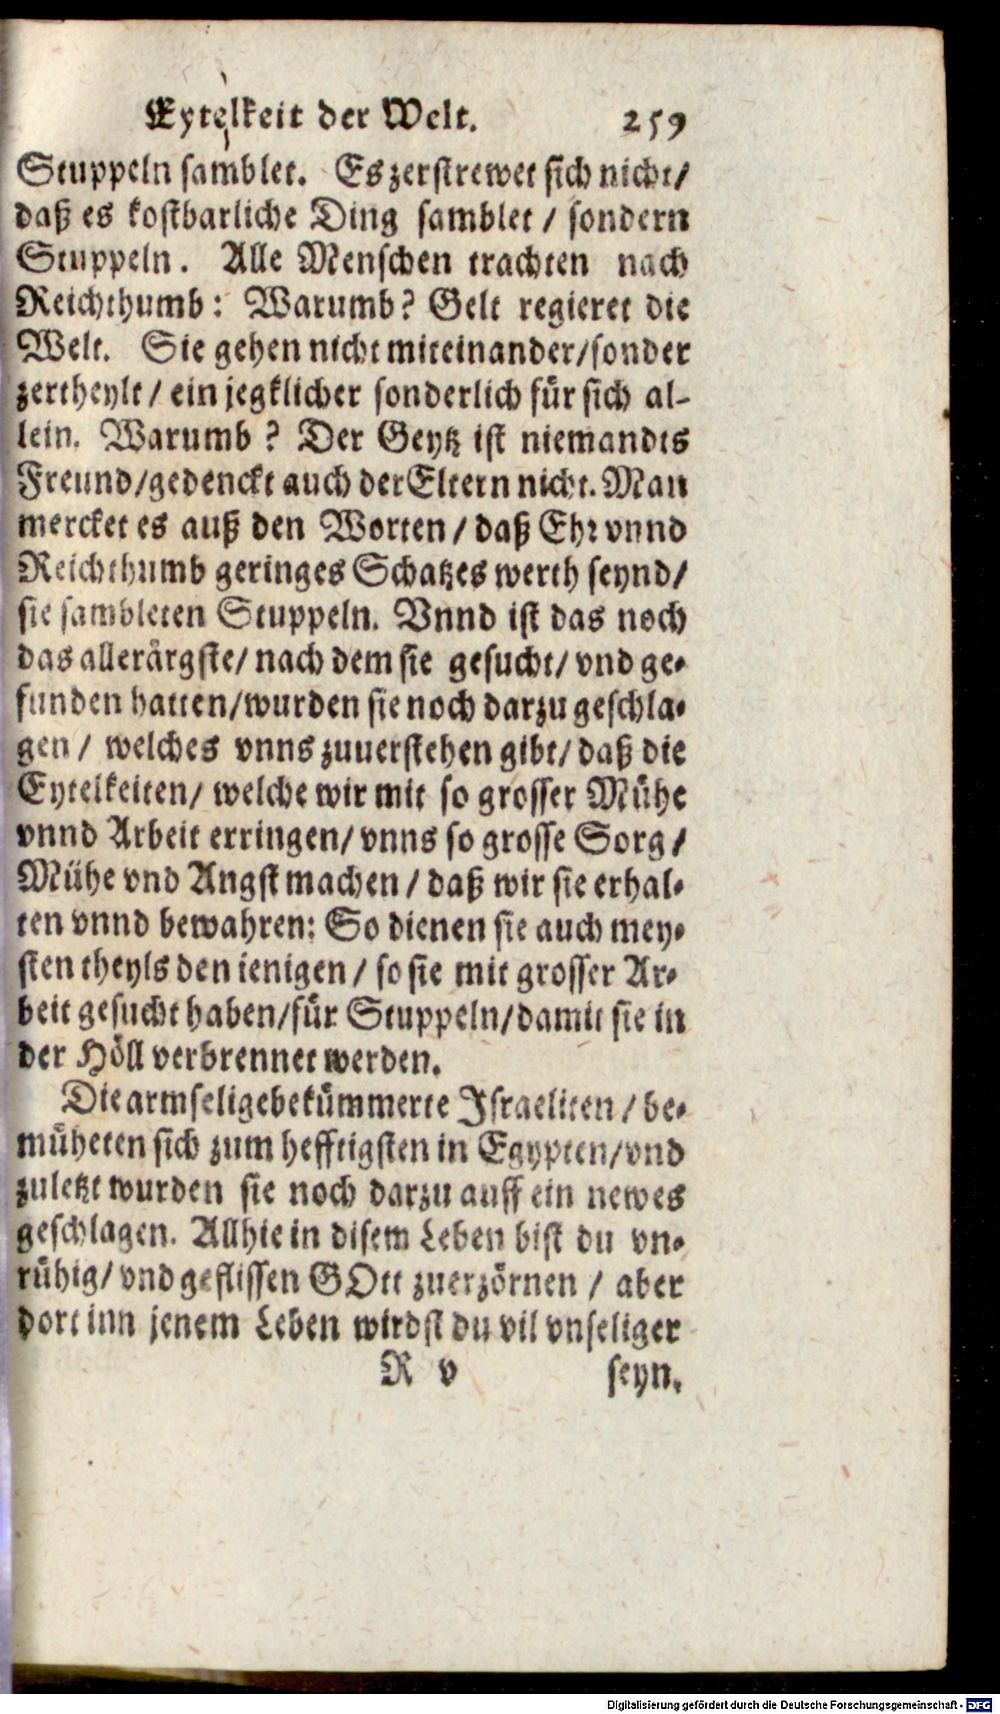 Eytelkeit der Welt. 259
Stuppeln samblet. Es zerstrewet sich nicht/
daß es kostbarliche Ding samblet / sondern
Stuppeln. Alle Menschen trachten nach
Reichthumb: Warumb? Gelt regieret die
Welt. Sie gehen nicht miteinander/sonder
zertheylt / ein jegklicher sonderlich für sich al-
lein. Warumb? Der Geytz ist niemandts
Freund/gedenckt auch der Eltern nicht. Man
mercket es auß den Worten / daß Ehr vnnd
Reichthumb geringes Schatzes werth seynd/
sie sambleten Stuppeln. Vnnd ist das noch
das allerärgste/ nach dem sie gesucht/ vnd ge-
funden hatten/wurden sie noch darzu geschla-
gen / welches vnns zuuerstehen gibt/ daß die
Eytelkeiten/ welche wir mit so grosser Mühe
vnnd Arbeit erringen/ vnns so grosse Sorg /
Mühe vnd Angst machen / daß wir sie erhal-
ten vnnd bewahren: So dienen sie auch mey-
sten theyls den ienigen / so sie mit grosser Ar-
beit gesucht haben/für Stuppeln/damit sie in
der Höll verbrennet werden.
Die armselige bekümmerte Israeliten / be-
müheten sich zum hefftigsten in Egypten/vnd
zuletzt wurden sie noch darzu auff ein newes
geschlagen. Allhie in disem Leben bist du vn-
rühig/ vnd geflissen GOtt zuerzörnen / aber
dort inn jenem Leben wirdst du vil vnseliger
R v seyn.
Digitalisierung gefördert durch die Deutsche Forschungsgemeinschaft - DFG